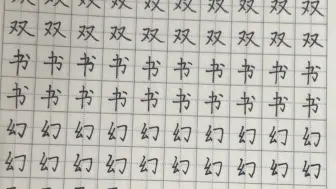 双双双双双双双双双双
双双双双双双双双双双
书书书书书书书书书书
书书书书书书书书书书
幻幻幻幻幻幻幻幻幻幻
幻幻幻幻幻幻幻幻幻幻